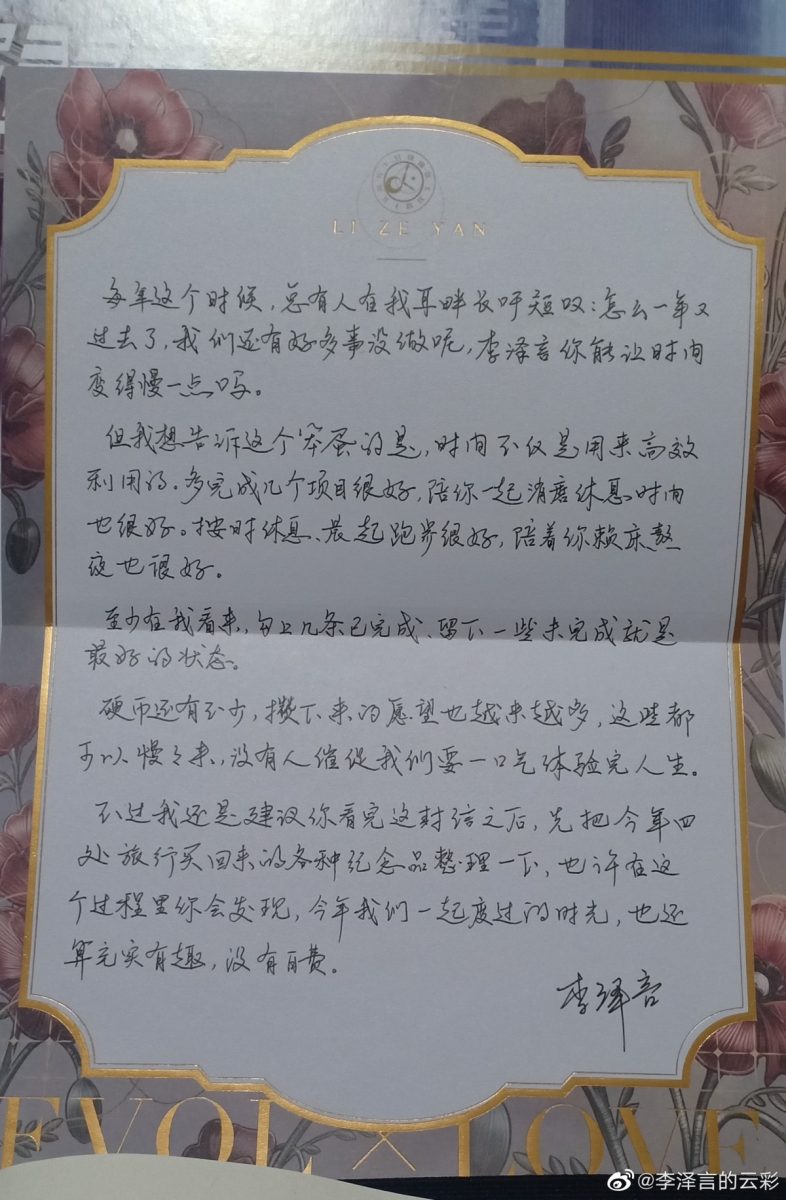 LI ZE YAN
每年这个时候，总有人在我耳畔长吁短叹：怎么一年又
过去了，我们还有好多事没做呢，李泽言你能让时间
变得慢一点吗。
但我想告诉这个笨蛋的是，时间不仅是用来高效
利用的。多完成几个项目很好，陪你一起消磨休息时间
也很好。按时休息、晨起跑步很好，陪着你赖床熬
夜也很好。
至少在我看来，勾上几条已完成、留下一些未完成就是
最好的状态。
硬币还有不少，攒下来的愿望也越来越多，这些都
可以慢慢来，没有人催促我们要一口气体验完人生。
不过我还是建议你看完这封信之后，先把今年四
处旅行买回来的各种纪念品整理一下，也许在这
个过程里你会发现，今年我们一起度过的时光，也还
算充实有趣，没有白费。
李泽言
EVOL × LOVE
@李泽言的云彩